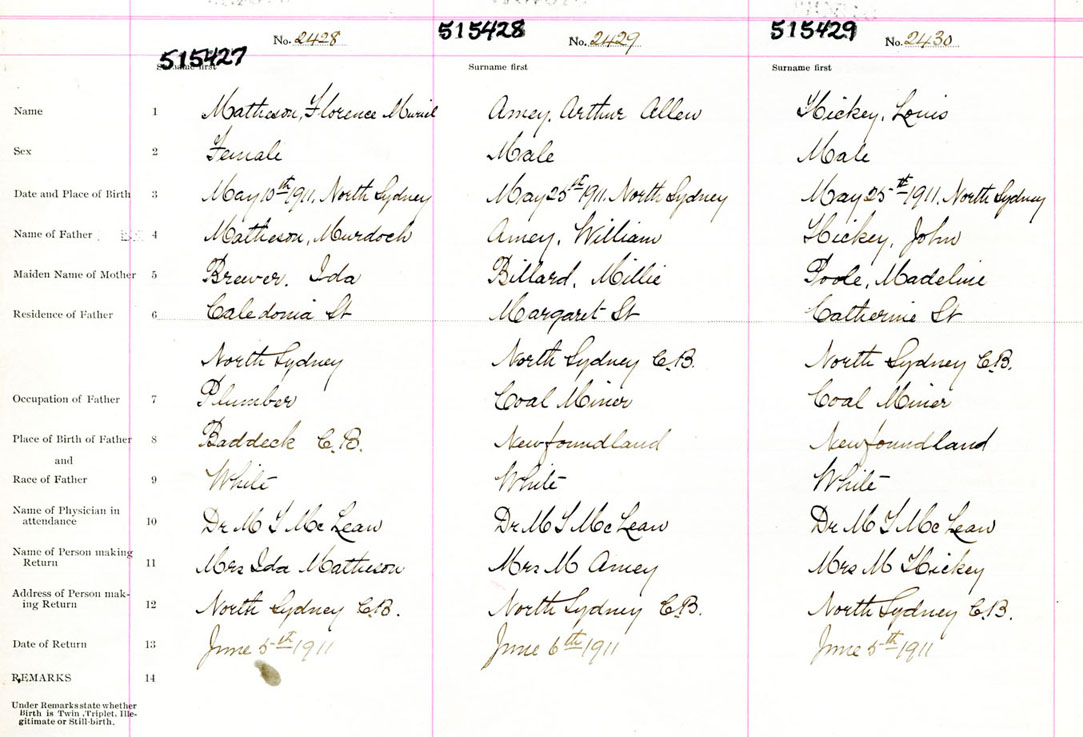 515427 No. 2428 515428 No. 2429 515429 No. 2430
Surname first Surname first Surname first
Name 1 Matheson, Florence Muriel Amey, Arthur Allen Hickey, Louis
Sex 2 Female Male Male
Date and Place of Birth 3 May 10th 1911. North Sydney May 25th 1911. North Sydney May 25th 1911. North Sydney
Name of Father 4 Matheson, Murdoch Amey, William Hickey, John
Maiden Name of Mother 5 Brewer, Ida Billard, Millie Poole, Madeline
Residence of Father 6 Caledonia St Margaret St Catherine St
North Sydney North Sydney C.B. North Sydney C.B.
Occupation of Father 7 Plumber Coal Miner Coal Miner
Place of Birth of Father 8 Baddeck C.B. Newfoundland Newfoundland
and
Race of Father 9 White White White
Name of Physician in
attendance 10 Dr M McLean Dr M McLean Dr M McLean
Name of Person making
Return 11 Mrs Ida Matheson Mrs M Amey Mrs M Hickey
Address of Person mak-
ing Return 12 North Sydney C.B. North Sydney C.B. North Sydney C.B.
Date of Return 13 June 5th 1911 June 6th 1911 June 5th 1911
REMARKS 14
Under Remarks state whether
Birth is Twin, Triplet, Ille-
gitimate or Still-birth.